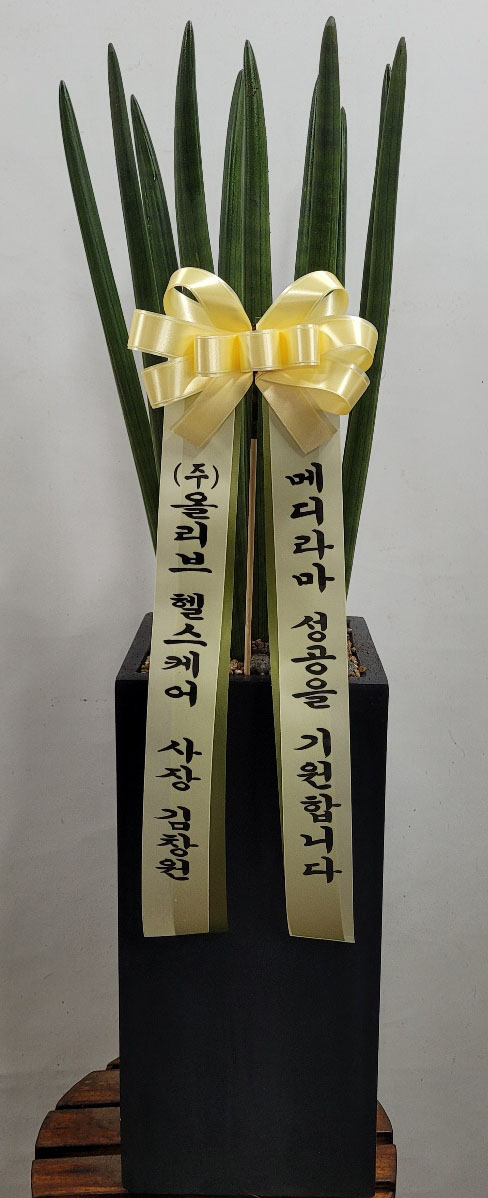 (주)올리브 헬스케어 사장 김창원
메디라마 성공을 기원합니다